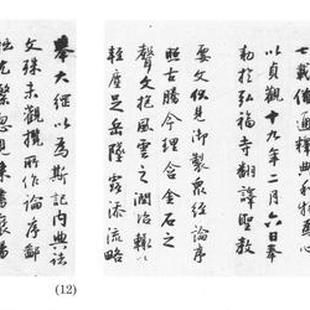 七載備通釋典利物爲心
以貞觀十九年二月六日奉
勅於弘福寺翻譯聖教
要文伏見御製衆經論序
照古騰今理含金石之
聲文抱風雲之潤治輒以
輕塵足岳墜露添流略
舉大綱以爲斯記內典諸
文殊未觀攬所作論序鄙
拙尤繁忽見來書褒揚
(12)